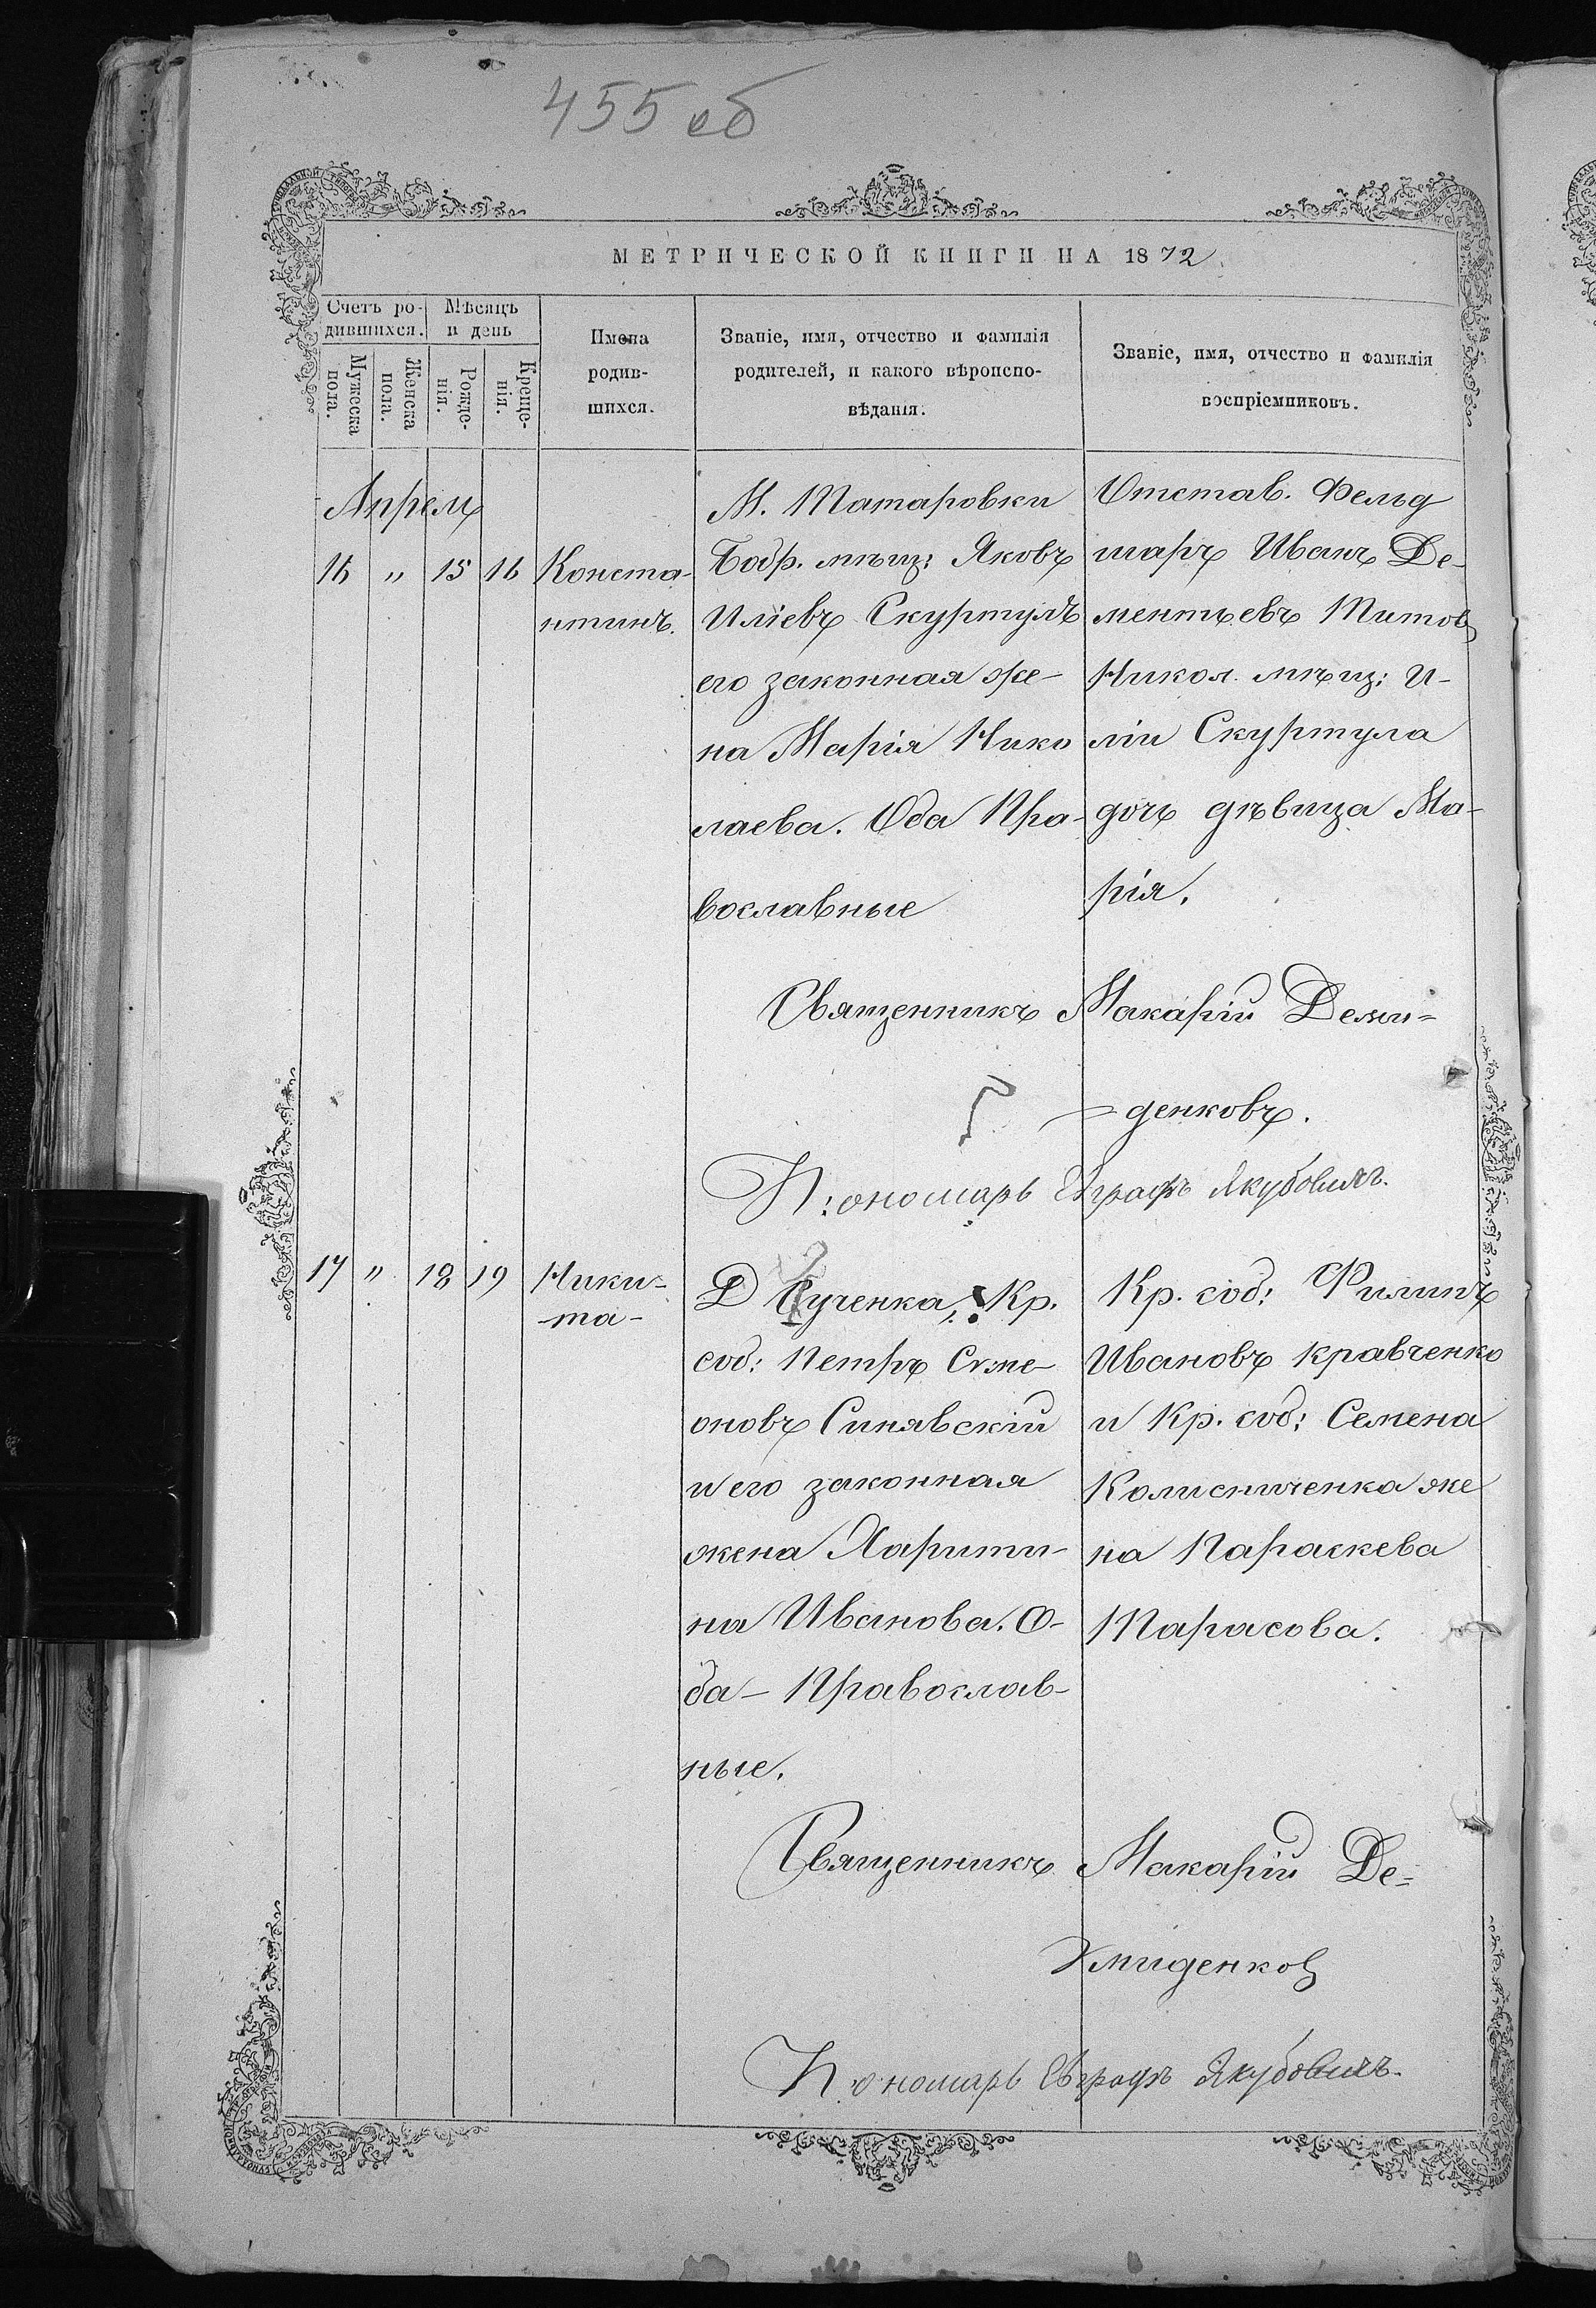 455 об
МЕТРИЧЕСКОЙ КНИГИ НА 1872
Счетъ ро-
дившихся.
Мѣсяцъ
и день
Мужеска
пола.
Женска
пола.
Рожде-
нія.
Креще-
нія.
Имена
родив-
шихся.
Званіе, имя, отчество и фамилія
родителей, и какого вѣроиспо-
вѣданія.
Званіе, имя, отчество и фамилія
воспріемниковъ.
Апрель
16 " 15 16
Конста-
нтинъ.
М. Татаровки
Бобр. мѣщ: Яковъ
Иліевъ Скуртулъ
его законная же-
на Марія Нико
лаева. Оба Пра-
вославные
Отстав. Фельд
шаръ Иванъ Де-
ментьевъ Титовъ
Никол. мѣщ: И-
ліи Скуртула
дочь дѣвица Ма-
рія.
Священникъ Макарій Деми-
=денковъ.
П:ономарь Евграфъ Якубовичъ.
17 " 18 19
Ники-
-та-
Д Кр.
соб: Петръ Симе-
оновъ Синявскій
и его законная
жена Харити-
на Иванова. О-
ба - Православ-
ные.
Кр. соб: Филипъ
Ивановъ Кравченко
и Кр. соб: Семена
Колисниченка же
на Параскева
Тарасова.
Священникъ Макарій Де-
=миденковъ
П.ономарь Евграфъ Якубовичъ.